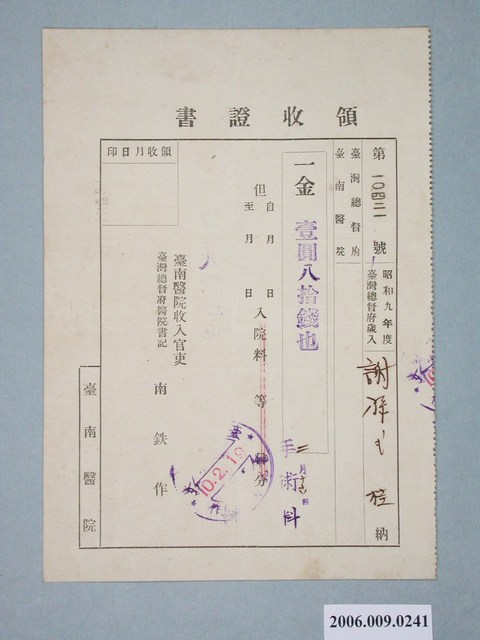 領收證書
第一〇四三一號
昭和九年度
臺灣總督府歲入
謝
納
臺灣總督府
臺南醫院
一金壹圓八拾錢也
但
自 月 日
至 月 日
入院料 等 分
二月十六日
手術料
10.2.19
臺南醫院收入官吏
臺灣總督府醫院書記
南鉄作
領收月日印
臺南醫院
2006.009.0241